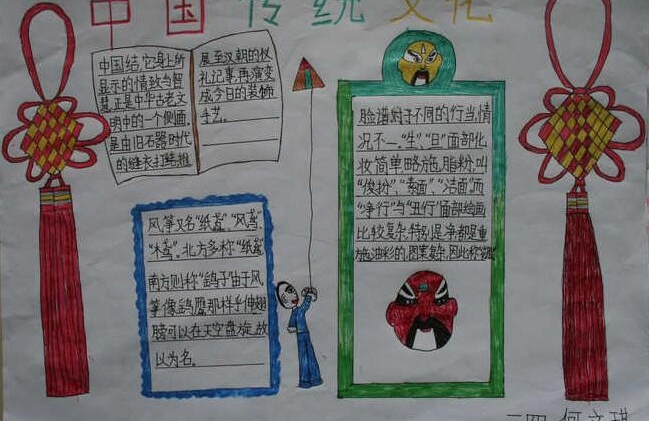 中国传统文化
中国结,它身上所
显示的情致与智
慧,正是中华古老文
明中的一个侧面.
是由旧石器时代
的缝衣打结,推
展至汉朝的仪
礼记事,再演变
成今日的装饰
手艺.
风筝又名“纸鸢”.“风鸢”.
“木鸢”.北方多称“纸鸢”
南方则称“鹞子”由于风
筝像鹞鹰那样伸翅
膀可以在天空盘旋,故
以为名.
脸谱对于不同的行当,情
况不一.“生”、“旦”面部化
妆简单,略施脂粉,叫
“俊扮”、“素面”、“洁面”.而
“净行”与“丑行”面部绘画
比较复杂,特别是净,都是重
施油彩的,图案复杂,因此称